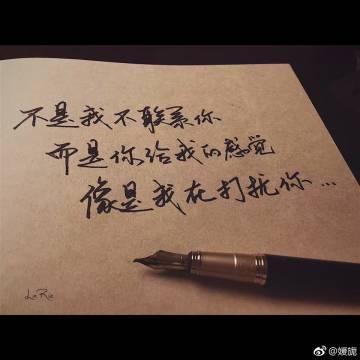 不是我不联系你
而是你给我的感觉
像是我在打扰你...
LeRie
@媛旎